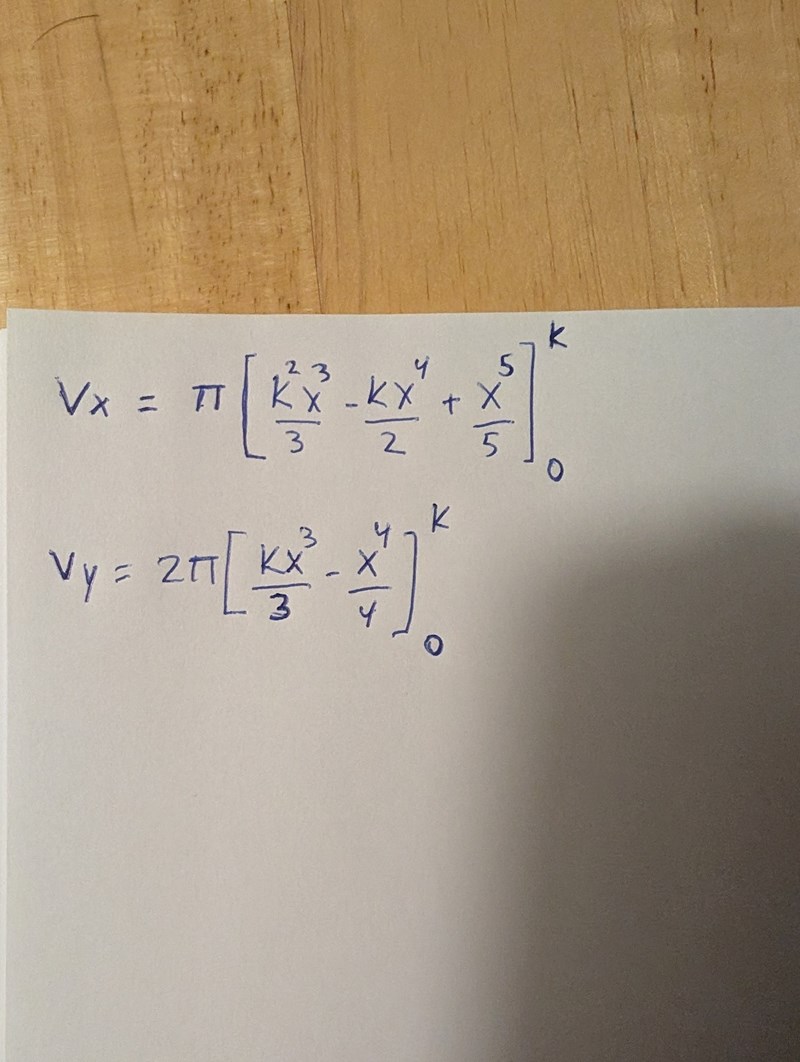 Vx = π[K²x³/3 - Kx⁴/2 + x⁵/5]₀ᴷ
Vy = 2π[Kx³/3 - x⁴/4]₀ᴷ